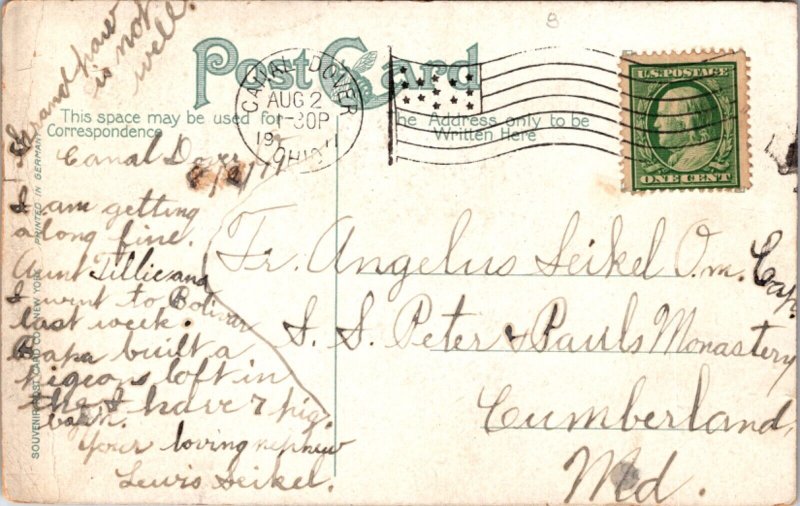 Grandpaw
is not
well.
Post Card
This space may be used for
Correspondence
The Address only to be
Written Here
CANAL DOVER
AUG 2
-30P
OHIO
U.S. POSTAGE
ONE CENT
Canal Dover
8/2/11
I am getting
along fine.
Aunt Tillie and
I went to Bolivar
last week.
Papa built a
pigeons loft in
the
I have 7 pig.
Your loving nephew
Lewis Seikel.
Fr. Angelus Seikel O.m. Cap.
S.S. Peter & Pauls Monastery
Cumberland,
Md.
SOUVENIR POST CARD CO. NEW YORK
PRINTED IN GERMANY